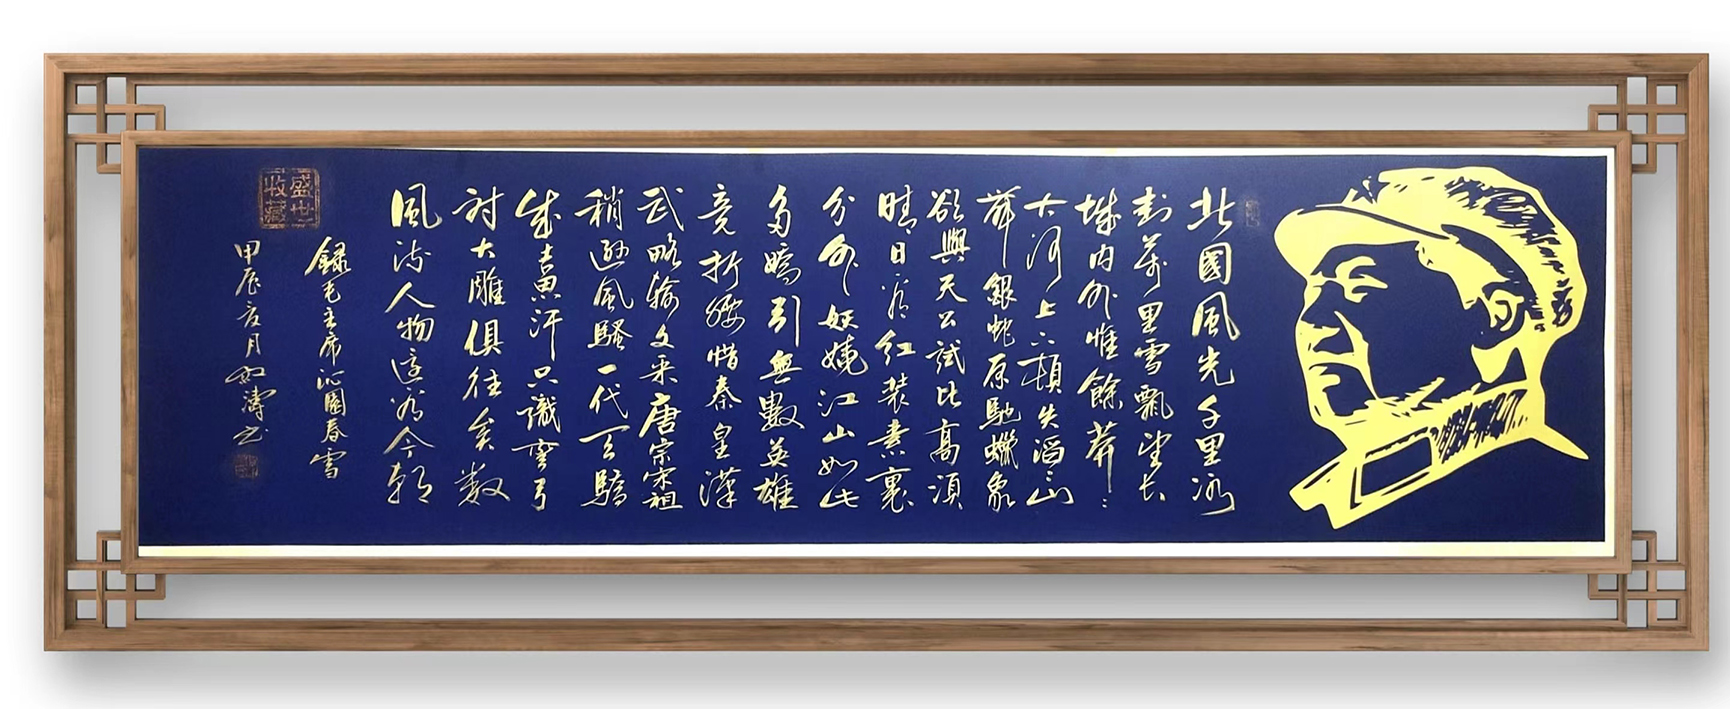 北國風光千里冰
封萬里雪飄望长
城内外惟餘莽〻
大河上下頓失滔〻山
舞銀蛇原馳蠟象
欲與天公試比高須
晴日看红装素裹
分外妖嬈江山如此
多嬌引無數英雄
竞折腰惜秦皇漢
武略输文采唐宗宋祖
稍遜風騷一代天驕
成吉思汗只識彎弓
射大雕俱往矣数
風流人物還看今朝
録毛主席沁園春雪
甲辰亥月
盛世收藏